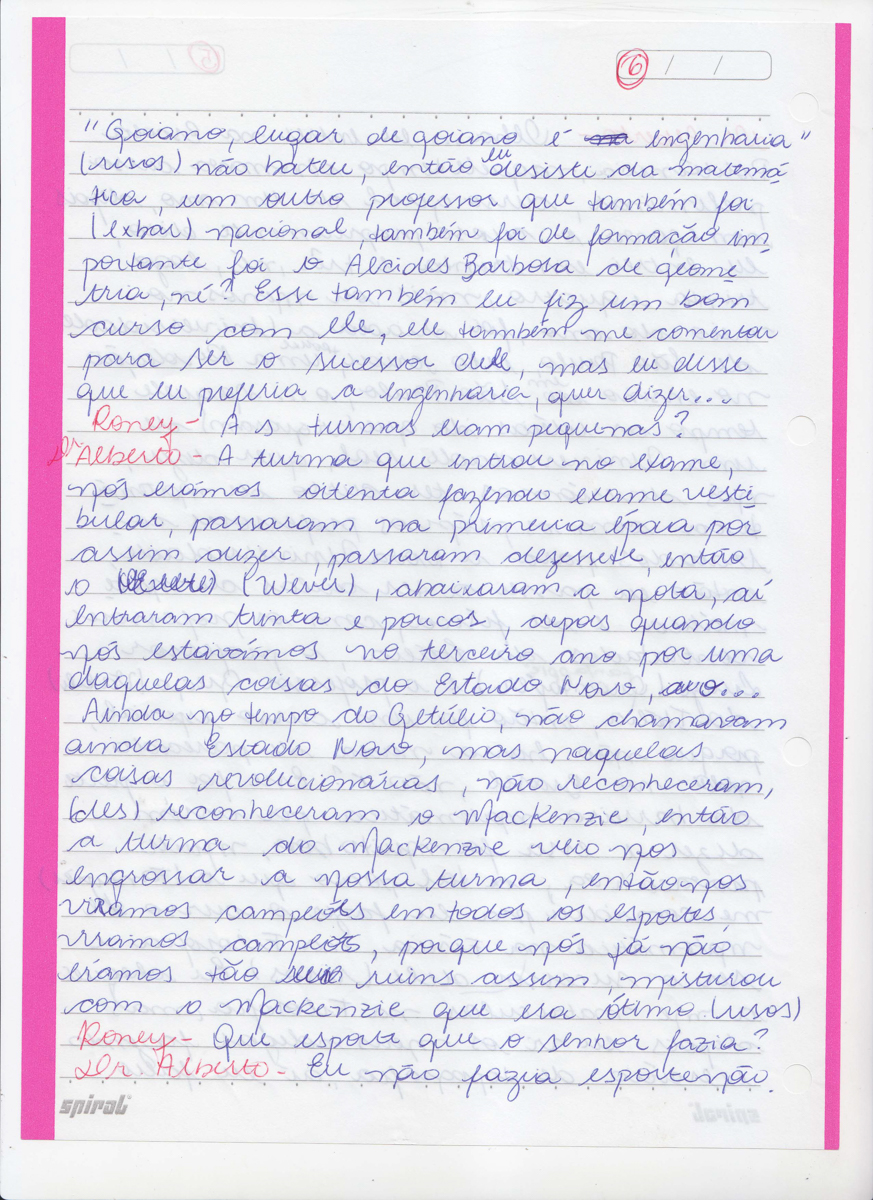 6 / /
"Goiano, lugar de goiano é engenharia"
(risos) não bateu, então eu desisti da matemá
tica, um outro professor que também foi
(exbar) nacional, também foi de formação im
portante foi o Alcides Barbosa de geome
tria, né? Esse também eu fiz um bom
curso com ele, ele também me comentou
para ser o sucessor dele, mas eu disse
que eu preferia a engenharia, quer dizer...
Roney - As turmas eram pequenas?
Dr Alberto - A turma que entrou no exame,
nós erámos oitenta fazendo exame vesti
bular, passaram na primeira época por
assim dizer, passaram dezessete, então
o (Wever), abaixaram a nota, aí
entraram trinta e poucos, depois quando
nós estavámos no terceiro ano por uma
daquelas coisas do Estado Novo, ...
Ainda no tempo do Getúlio, não chamavam
ainda Estado Novo, mas naquelas
coisas revolucionárias, não reconheceram,
(des) reconheceram o Mackenzie, então
a turma do Mackenzie veio nos
engrossar a nossa turma, então nos
viramos campeões em todos os esportes,
viramos campeões, porque nós já não
erámos tão ruins assim, misturou
com o Mackenzie que era ótimo (risos)
Roney - Que esporte que o senhor fazia?
Dr. Alberto - Eu não fazia esporte não.
spiral